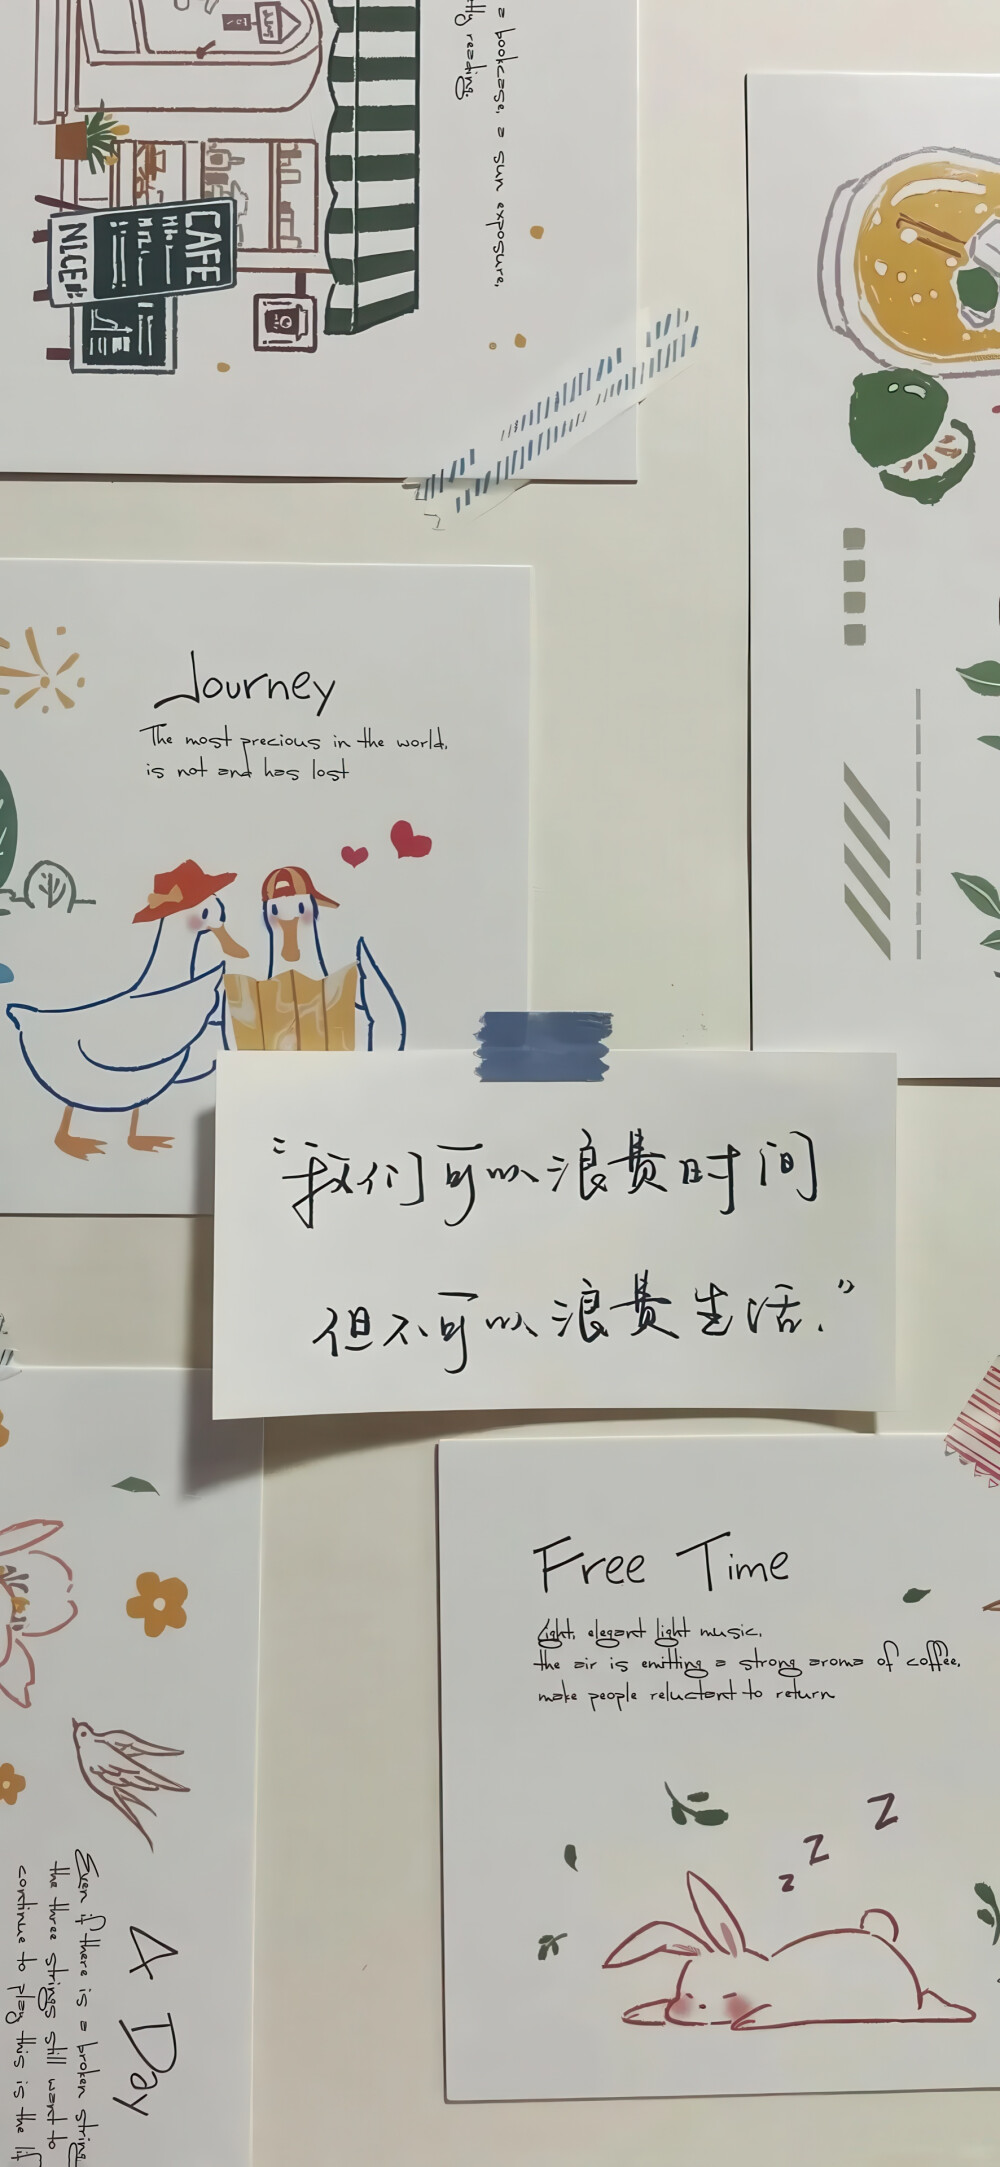 a bookcase, a sun exposure,
tly reading.
CAFE
NICE
Journey
The most precious in the world,
is not and has lost
“我们可以浪费时间
但不可以浪费生活.”
Free Time
Light, elegant light music,
the air is emitting a strong aroma of coffee,
make people reluctant to return
z
z
z
A Day
Even if there is a broken string
the three strings still want to
continue to play this is the lif